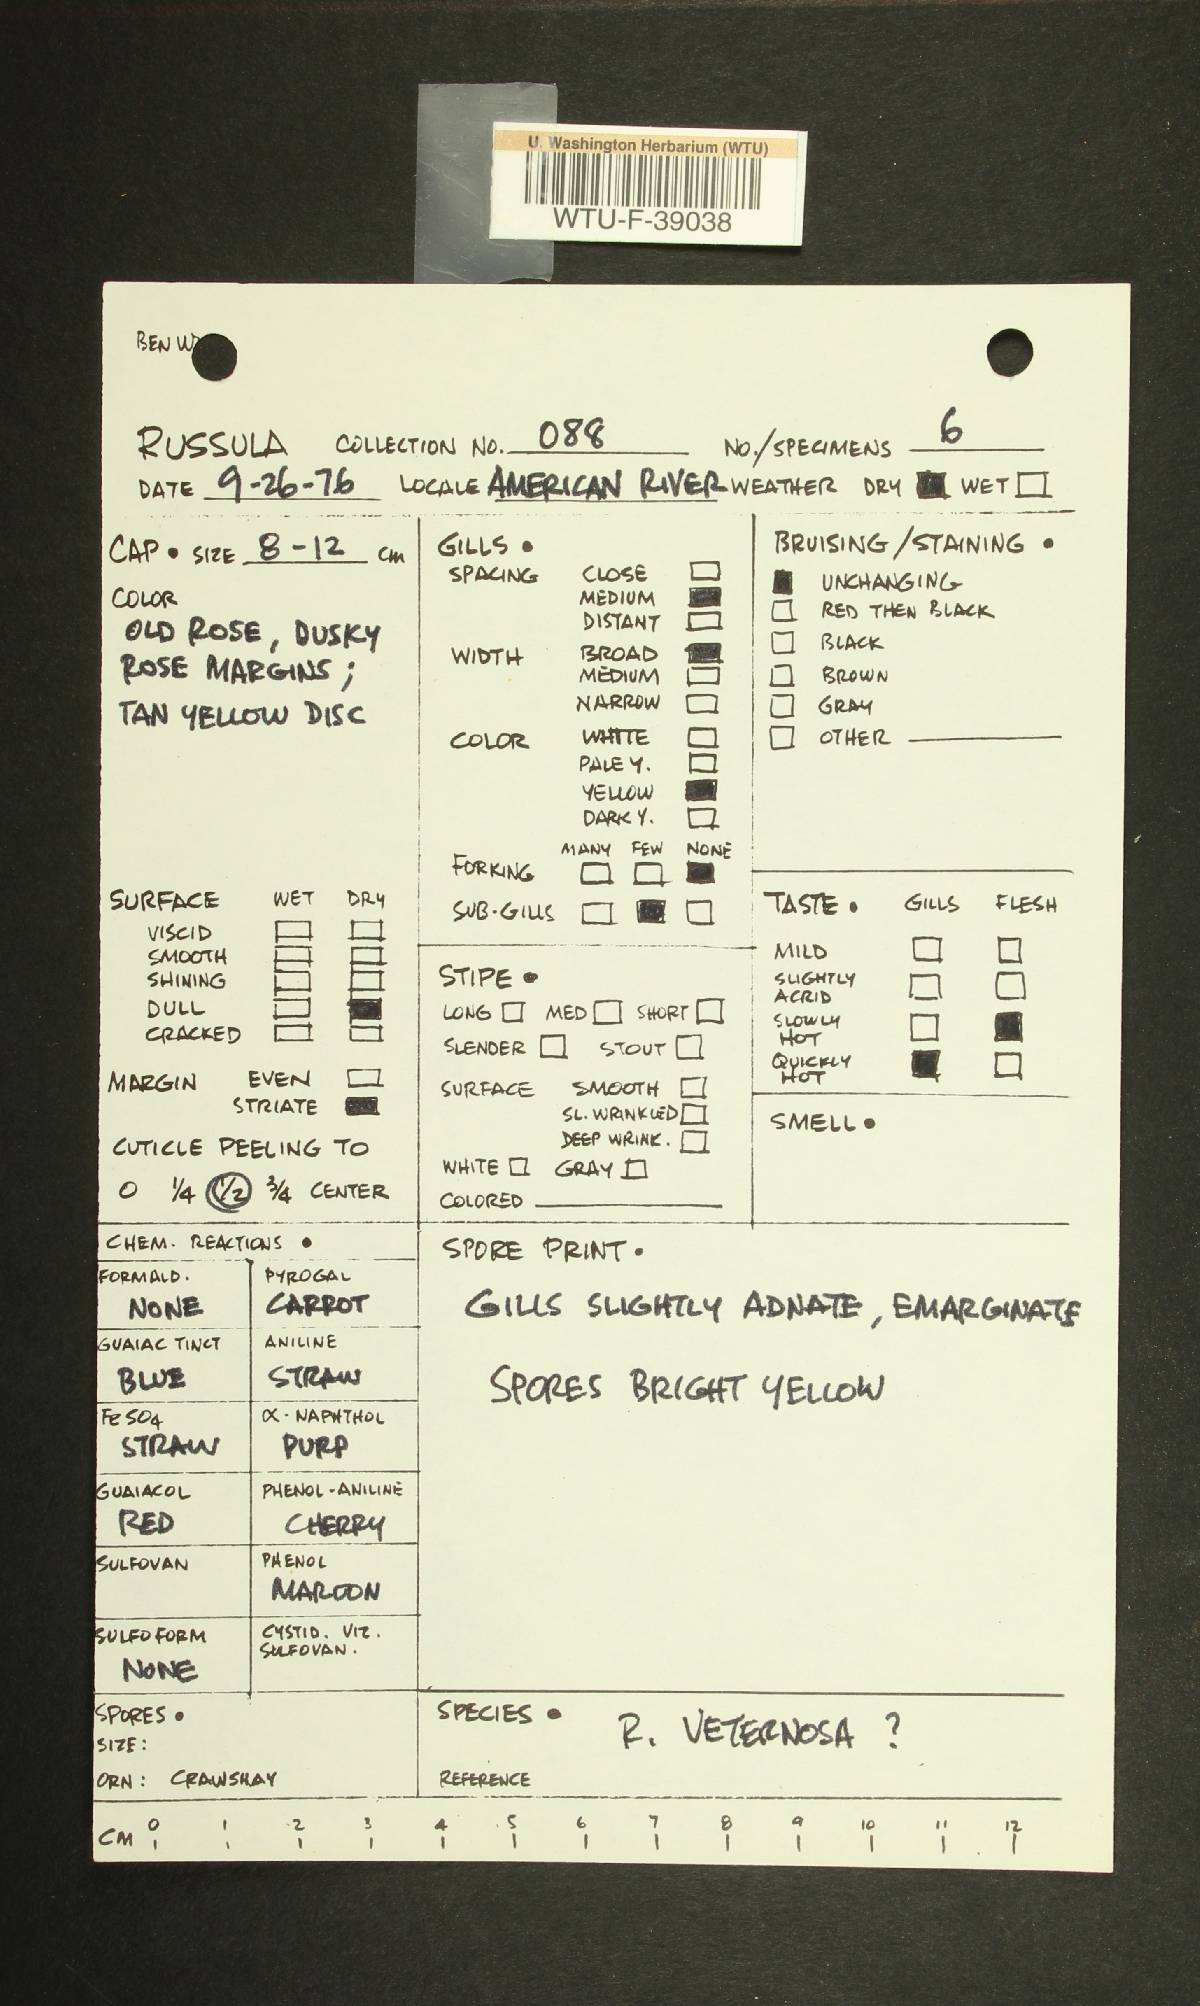 U. Washington Herbarium (WTU)
WTU-F-39038
BEN
RUSSULA COLLECTION NO. 088 NO./SPECIMENS 6
DATE 9-26-76 LOCALE AMERICAN RIVER WEATHER DRY WET
CAP • SIZE 8-12 CM
COLOR
OLD ROSE, DUSKY
ROSE MARGINS;
TAN YELLOW DISC
SURFACE WET DRY
VISCID
SMOOTH
SHINING
DULL
CRACKED
MARGIN EVEN
STRIATE
CUTICLE PEELING TO
0 1/4 1/2 3/4 CENTER
GILLS •
SPACING CLOSE
MEDIUM
DISTANT
WIDTH BROAD
MEDIUM
NARROW
COLOR WHITE
PALE Y.
YELLOW
DARK Y.
MANY FEW NONE
FORKING
SUB-GILLS
STIPE •
LONG MED SHORT
SLENDER STOUT
SURFACE SMOOTH
SL. WRINKLED
DEEP WRINK.
WHITE GRAY
COLORED
BRUISING/STAINING •
UNCHANGING
RED THEN BLACK
BLACK
BROWN
GRAY
OTHER
TASTE • GILLS FLESH
MILD
SLIGHTLY
ACRID
SLOWLY
HOT
QUICKLY
HOT
SMELL •
CHEM. REACTIONS •
FORMALD. PYROGAL
NONE CARROT
GUAIAC TINCT ANILINE
BLUE STRAW
FeSO4 α-NAPHTHOL
STRAW PURP
GUAIACOL PHENOL-ANILINE
RED CHERRY
SULFOVAN PHENOL
MAROON
SULFOFORM CYSTID. VIZ.
SULFOVAN.
NONE
SPORE PRINT •
GILLS SLIGHTLY ADNATE, EMARGINATE
SPORES BRIGHT YELLOW
SPORES •
SIZE:
ORN: CRAWSHAY
SPECIES • R. VETERNOSA ?
REFERENCE
CM 0 1 2 3 4 5 6 7 8 9 10 11 12